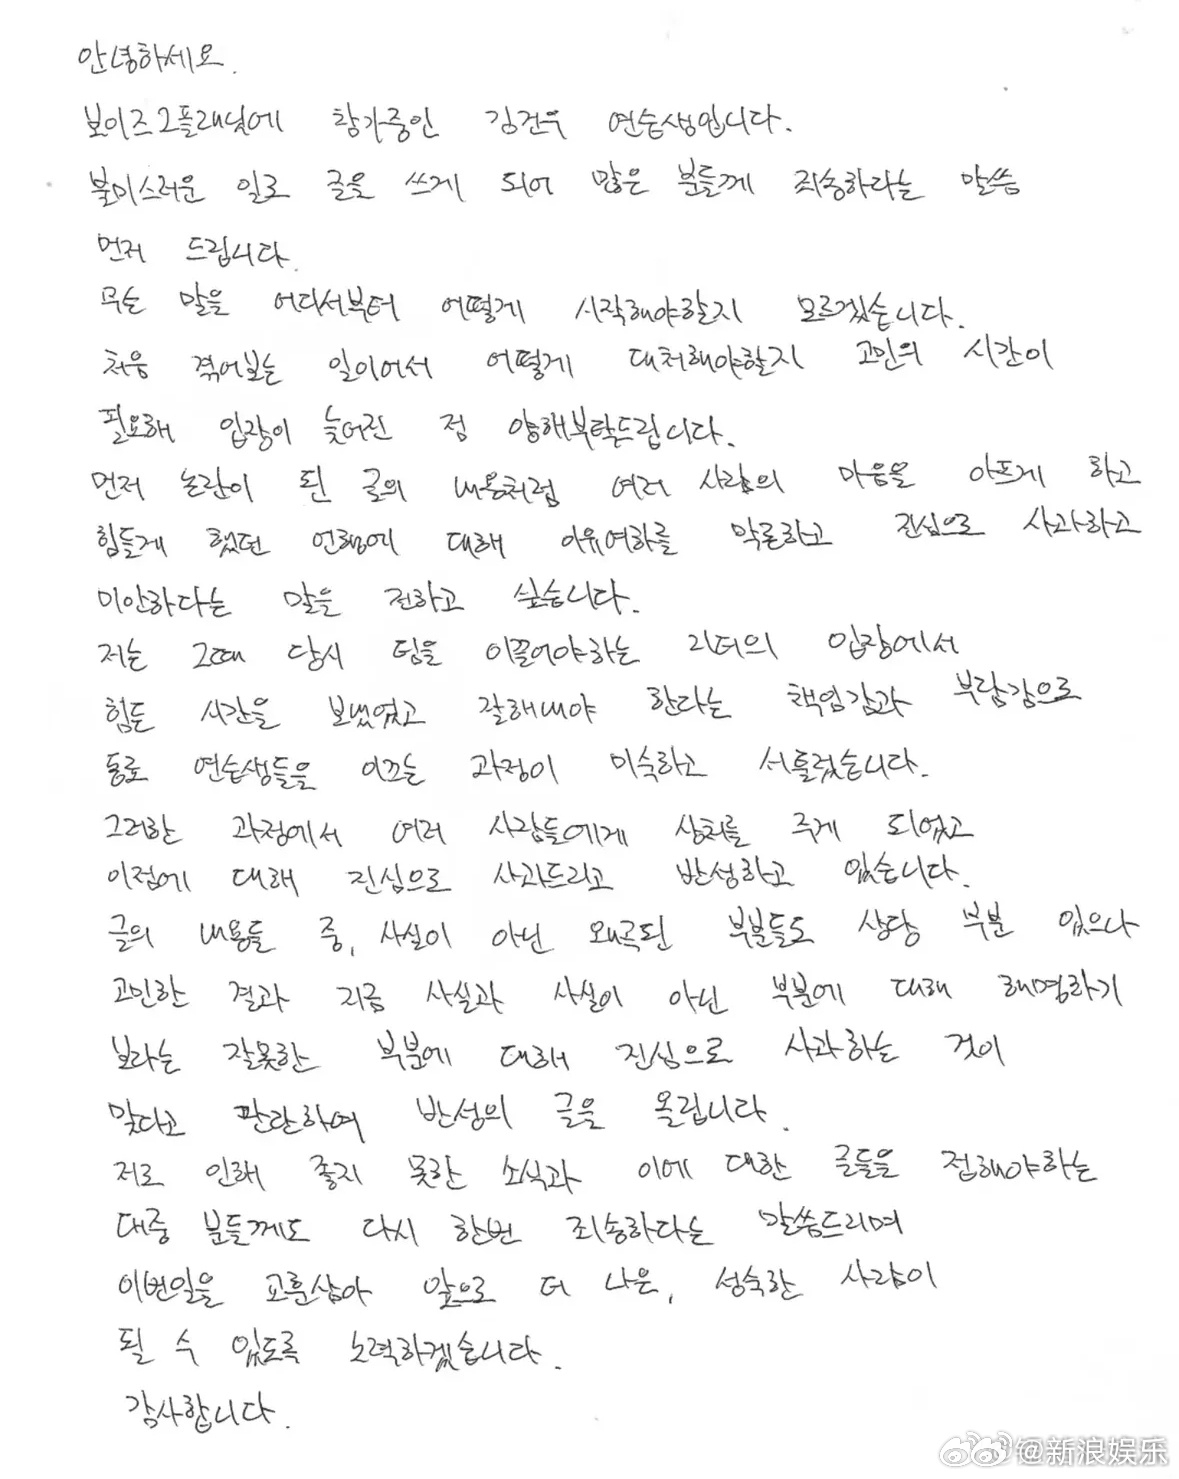 안녕하세요.
보이즈2플래닛에 참가중인 김건우 연습생입니다.
불미스러운 일로 글을 쓰게 되어 많은 분들께 죄송하라는 말씀
먼저 드립니다.
무슨 말을 어디서부터 어떻게 시작해야할지 모르겠습니다.
처음 겪어보는 일이어서 어떻게 대처해야할지 고민의 시간이
필요해 입장이 늦어진 점 양해부탁드립니다.
먼저 논란이 된 글의 내용처럼 여러 사람의 마음을 아프게 하고
힘들게 했던 언행에 대해 이유여하를 막론하고 진심으로 사과하고
미안하다는 말을 전하고 싶습니다.
저는 그때 당시 팀을 이끌어야하는 리더의 입장에서
힘든 시간을 보냈었고 잘해내야 한다는 책임감과 부담감으로
동료 연습생들을 이끄는 과정이 미숙하고 서툴렀습니다.
그러한 과정에서 여러 사람들에게 상처를 주게 되었고
이점에 대해 진심으로 사과드리고 반성하고 있습니다.
글의 내용들 중, 사실이 아닌 왜곡된 부분들도 상당 부분 있으나
고민한 결과 지금 사실과 사실이 아닌 부분에 대해 해명하기
보다는 잘못한 부분에 대해 진심으로 사과하는 것이
맞다고 판단하여 반성의 글을 올립니다.
저로 인해 좋지 못한 소식과 이에 대한 글들을 접해야하는
대중 분들께도 다시 한번 죄송하다는 말씀드리며
이번일을 교훈삼아 앞으로 더 나은, 성숙한 사람이
될 수 있도록 노력하겠습니다.
감사합니다.
@新浪娱乐